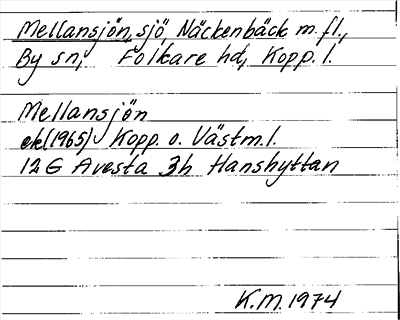 Mellansjön, sjö, Näckenbäck m.fl.,
By sn, Folkare hd, Kopp. l.
Mellansjön
ek(1965) Kopp. o. Västm.l.
12G Avesta 3h Hanshyttan
K.M. 1974